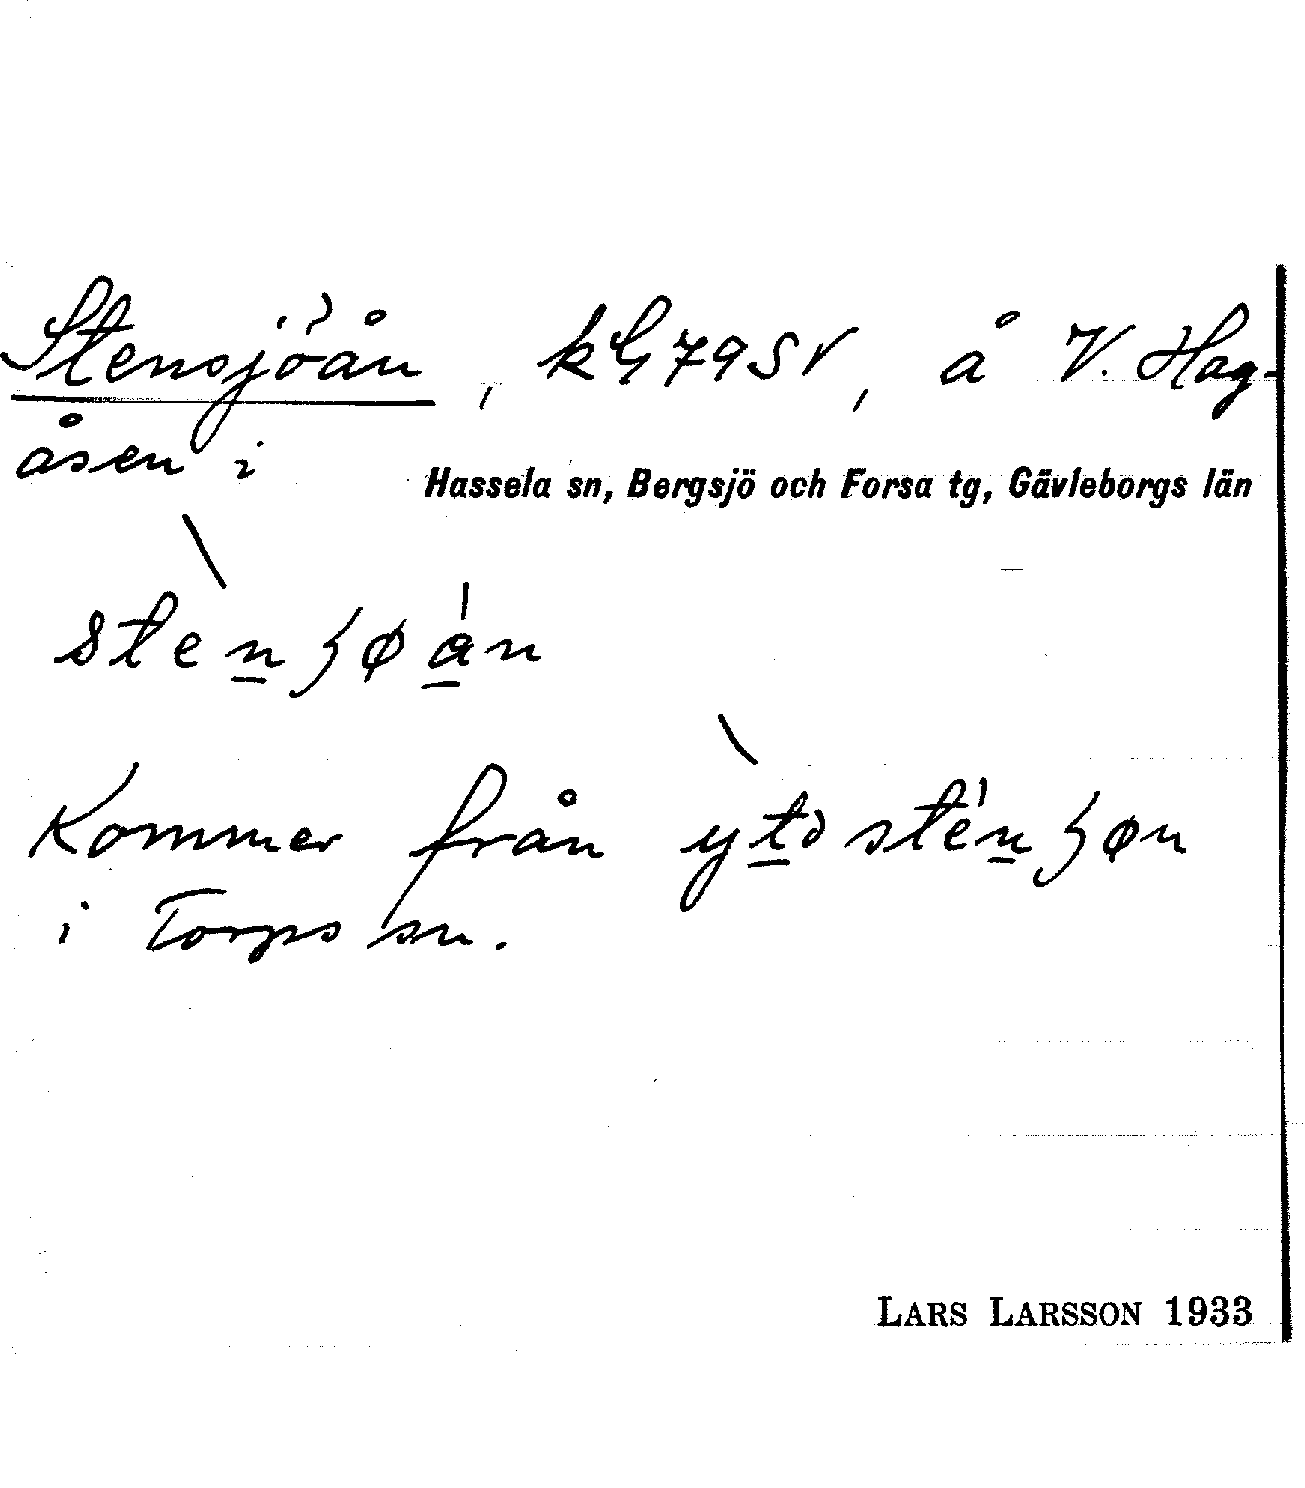 Stensjöån, kG79SV, å V. Hag-
åsen i
Hassela sn, Bergsjö och Forsa tg, Gävleborgs län
Kommer från
i Torps sn.
LARS LARSSON 1933